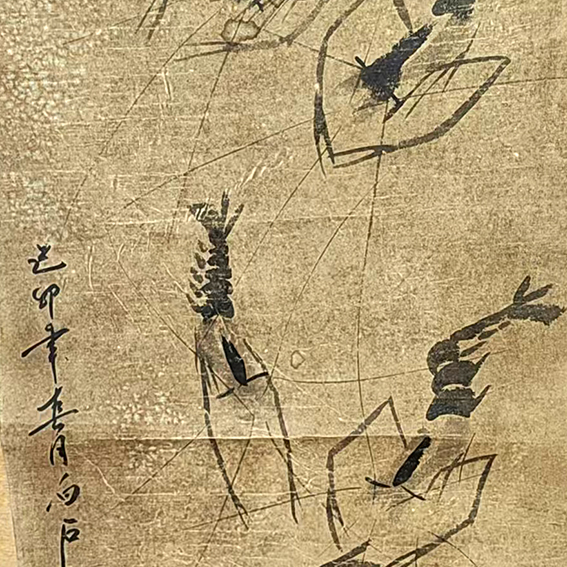 己卯年春月白石